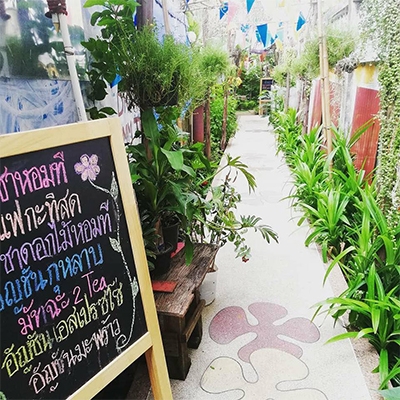 ชาหอมที
แฟกะทิสด
ชาดอกไม้หอมที
อัญชันกุหลาบ
มัทฉะ 2 Tea
อัญชันเอสเปรซโซ่
อัญชันมะพร้าว